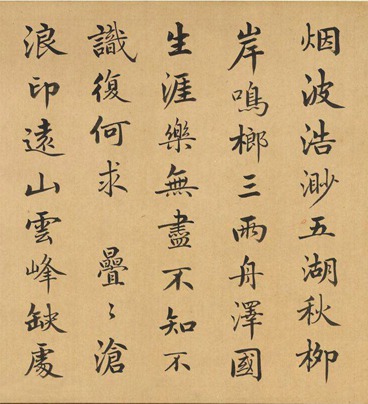 烟波浩渺五湖秋柳
岸鳴榔三兩舟澤國
生涯樂無盡不知不
識復何求 疊〻滄
浪印遠山雲峰缺處